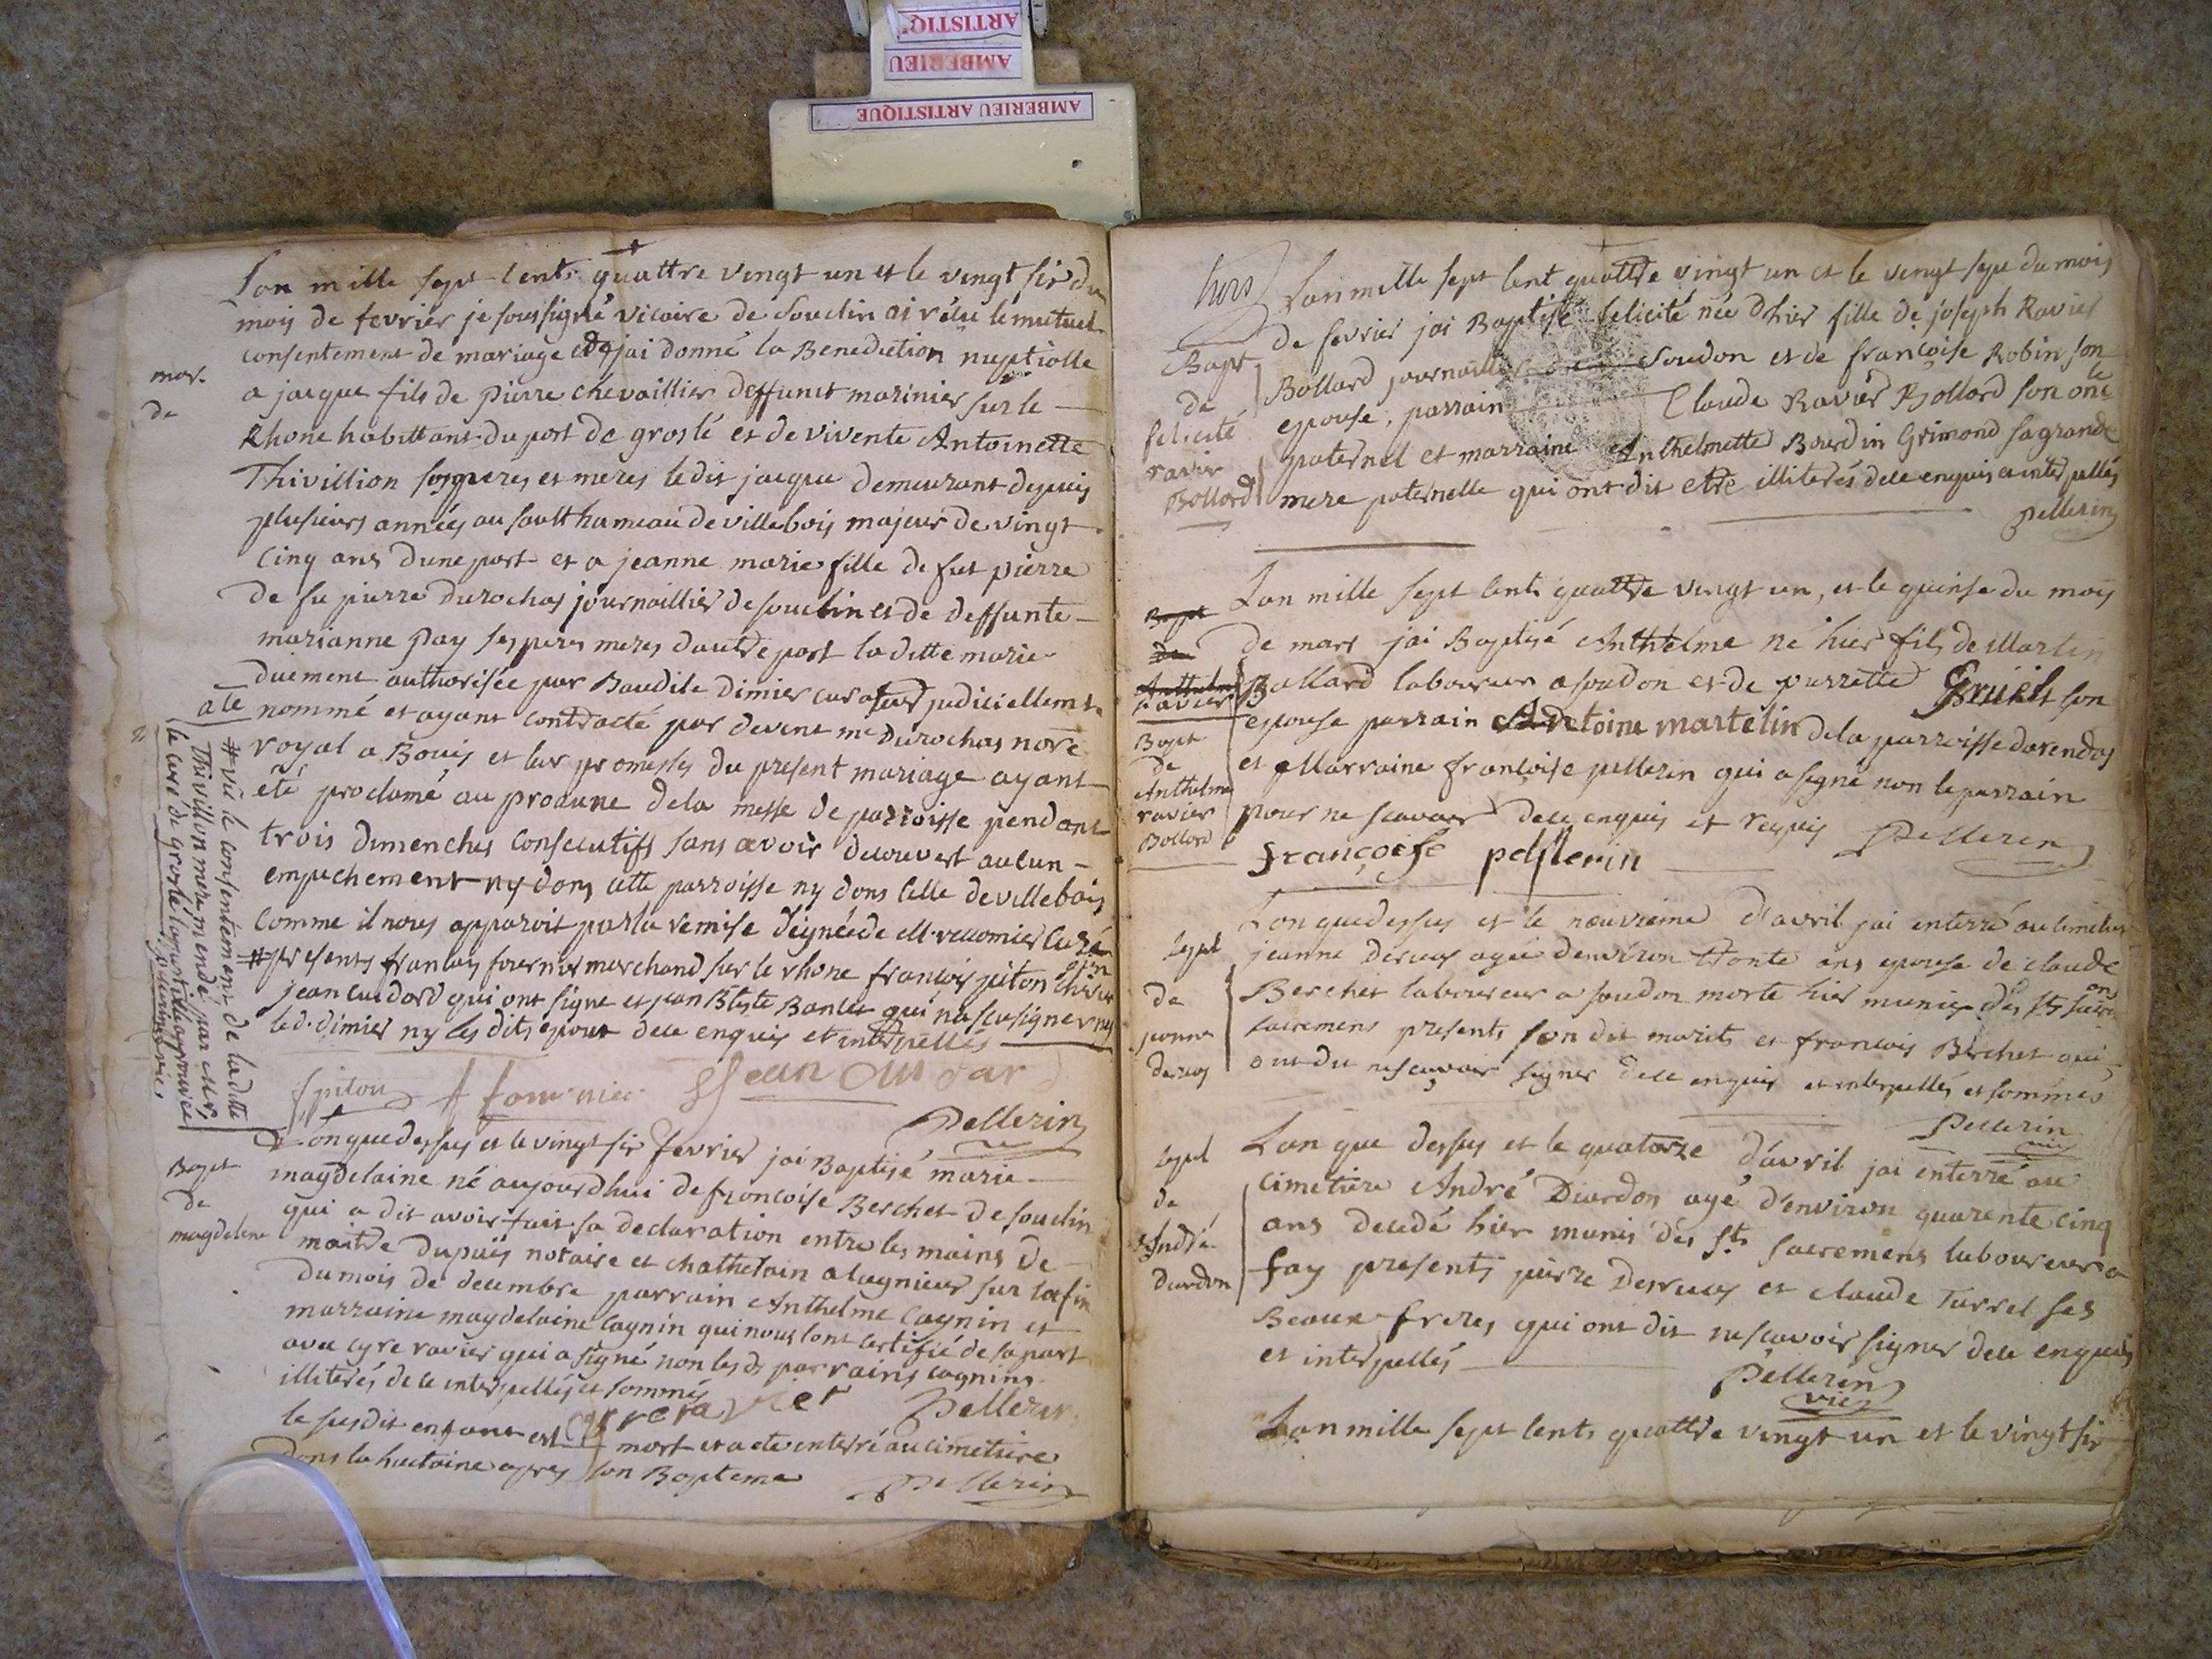 ARTISTIQ
AMBERIEU
AMBERIEU ARTISTIQUE
Lan mille sept cents quattre vingt un et le vingt six du
mois de fevrier je soussigné vicaire de Souclin ai réçu le mutuel
consentement de mariage et jai donné la Benediction nuptialle
a jacque fils de pierre chevaillier deffunct marinier sur le
Rhone habittant du port de groslé et de vivente Antoinette
Thivillion ses peres et meres ledit jacque demeurant depuis
plusieurs années au sault hameau de villebois majeur de vingt
cinq ans dune part et a jeanne marie fille de fut pierre
de fu pierre Durochas journaillier de souclin et de deffunte
marianne pay ses peres meres dautre part la ditte marie
duement authorisée par Baudile Dimier curateur judiciellement
nommé et ayant contracté par devent me Durochas nore
royal a Bouis et les promesses du present mariage ayant
été proclamé au prosne dela messe de parroisse pendant
trois dimenches consecutifs sans avoir decouvert aucun
empechement ny dans cette parroisse ny dans celle de villebois
comme il nous apparoit par la remise signée de Mr. curé
# presents francois fournier marchand sur le rhone francois piton
jean cusdard qui ont signe et jean Bte qui na scu signer ny
led. dimier ny les dits epoux dece enquis et interpellés
fpiton f fournier Jean cusdar
Pellerin
mar.
de
a te
# vu le consentement de la ditte
Thivillion mere mendé par Mr,
le curé de groslé
Lan que dessus et le vingt six fevrier jai Baptisé marie
magdelaine né aujourdhui de francoise Berchet de souclin
qui a dit avoir fait sa declaration entre les mains de
maitre dupuis notaire et chathelain a lagnieu sur la fin
du mois de decembre parrain Anthelme Cagnin et
marraine magdelaine Cagnin qui nous lont certifié de sa part
avec cyre ravier qui a signé non les ds parrains cagnins
illiterés de ce interpellés et sommés
cyre ravier Pellerin
le susdit enfant est mort et a ete enterré au cimetiere
dans la huctaine apres son Bapteme
Pellerin
Bapt
de
magdelene
hors
Lan mille sept cent quattre vingt un et le vengt sept du mois
de fevrier jai Baptisé felicité née dhier fille de joseph Ravier
Bollard journaillier Soudon et de francoise Robin son
epouse, parrain Claude Ravier Bollard son oncle
paternel et marraine Anthelmette Bourdin Grimond sa grande
mere paternelle qui ont dit etre illiterés dece enquis et interpellés
pellerin
Bapt
de
felicité
ravir
Bollard
Lan mille sept cents quattre vingt un, et le quinse du mois
de mars jai Baptisé Anthelme né hier fils de Martin
Ballard laboureur a soudon et de pierrette Gruiet son
epouse parrain Antoine martelin dela parroisse darendas
et Marraine francoise pellerin qui a signé non le parrain
pour ne scavoir dece enquis et requis Pellerin
françoise pellerin
Bapt
de
Anthelm
ravier
Bapt
de
Anthelme
ravier
Bollard
Lan que dessus et le neuvieme d'avril jai enterré au cimetiere
jeanne Derucs agée denviron trente ans epouse de claude
Berchet laboureur a soudon morte hier munie des Sts
sacremens presents son dit marit et francois Berchet qui
ont du ne scavoir signer dece enquis et interpellés et sommés
Pellerin
vic
sepul
de
jeanne
derucs
Lan que dessus et le quatorze d'avril jai enterré au
cimetiere André Diardon agé d'environ quarente cinq
ans decedé hier munis des sts sacremens laboureur a
fay presents pierre Derrucs et claude Turrel ses
Beaux-freres qui ont dit ne scavoir signer dece enquis
et interpellés
Pellerin
vic
sepul
de
André
Durdon
Lan mille sept cents quattre vingt un et le vingt six